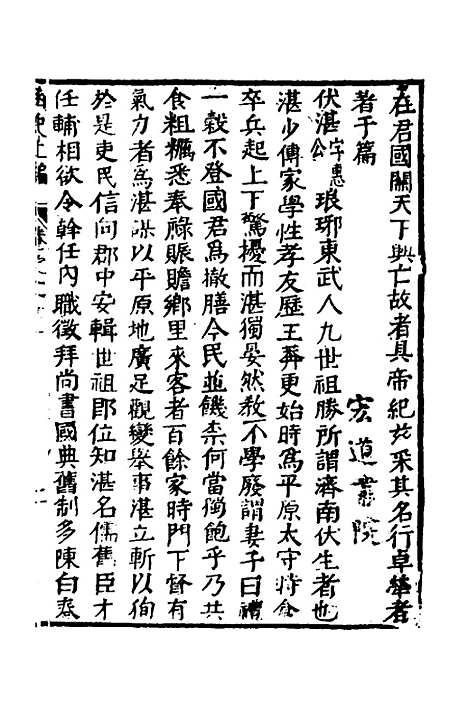 在君國關天下興亡故者具帝紀玆采其名行卓犖者
著于篇
宏道書院
伏湛字惠公琅琊東武人九世祖勝所謂濟南伏生者也
湛少傳家學性孝友歷王莽更始時爲平原太守時倉
卒兵起上下驚擾而湛獨晏然教不學廢謂妻子曰禮
一穀不登國君爲撤膳今民並饑柰何當獨飽乎乃共
食粗糲悉奉祿賑贍鄉里來客者百餘家時門下督有
氣力者爲湛謀以平原地廣足觀變舉事湛立斬以徇
於是吏民信向郡中安輯世祖卽位知湛名儒舊臣才
任輔相欲令幹任內職徵拜尚書國典舊制多陳白春
函史上編